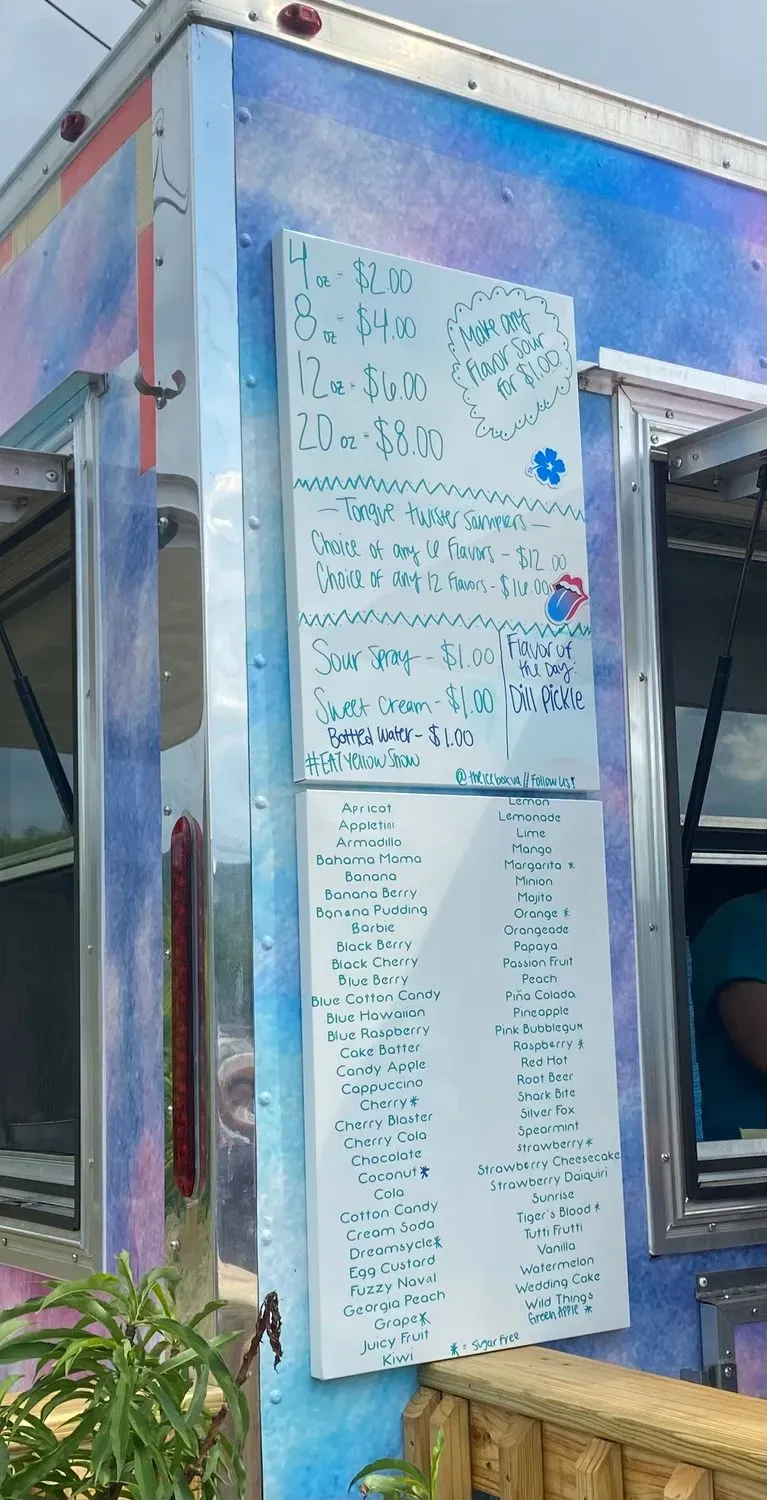 4 oz - $2.00
8 oz - $4.00
12 oz - $6.00
20 oz - $8.00
Make any
Flavor Sour
for $1.00
- Tongue twister Samplers -
Choice of any 6 Flavors - $12.00
Choice of any 12 Flavors - $16.00
Sour Spray - $1.00
Sweet Cream - $1.00
Bottled Water - $1.00
#EATYellowSnow
Flavor of
the Day:
Dill Pickle
@theiceboxva // Follow us!
Apricot
Appletini
Armadillo
Bahama Mama
Banana
Banana Berry
Banana Pudding
Barbie
Black Berry
Black Cherry
Blue Berry
Blue Cotton Candy
Blue Hawaiian
Blue Raspberry
Cake Batter
Candy Apple
Cappuccino
Cherry *
Cherry Blaster
Cherry Cola
Chocolate
Coconut *
Cola
Cotton Candy
Cream Soda
Dreamsycle *
Egg Custard
Fuzzy Naval
Georgia Peach
Grape *
Juicy Fruit
Kiwi
Lemon
Lemonade
Lime
Mango
Margarita *
Minion
Mojito
Orange *
Orangeade
Papaya
Passion Fruit
Peach
Piña Colada
Pineapple
Pink Bubblegum
Raspberry *
Red Hot
Root Beer
Shark Bite
Silver Fox
Spearmint
Strawberry *
Strawberry Cheesecake
Strawberry Daiquiri
Sunrise
Tiger's Blood *
Tutti Frutti
Vanilla
Watermelon
Wedding Cake
Wild Things
Green Apple *
* = Sugar Free